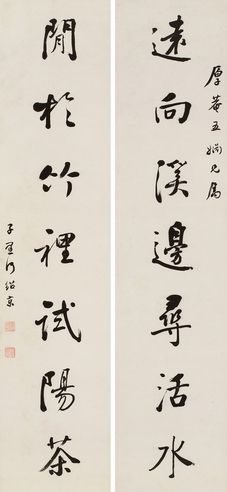 遠向溪邊尋活水
厚菴五姻兄屬
閒於竹裡試陽茶
子貞何紹京